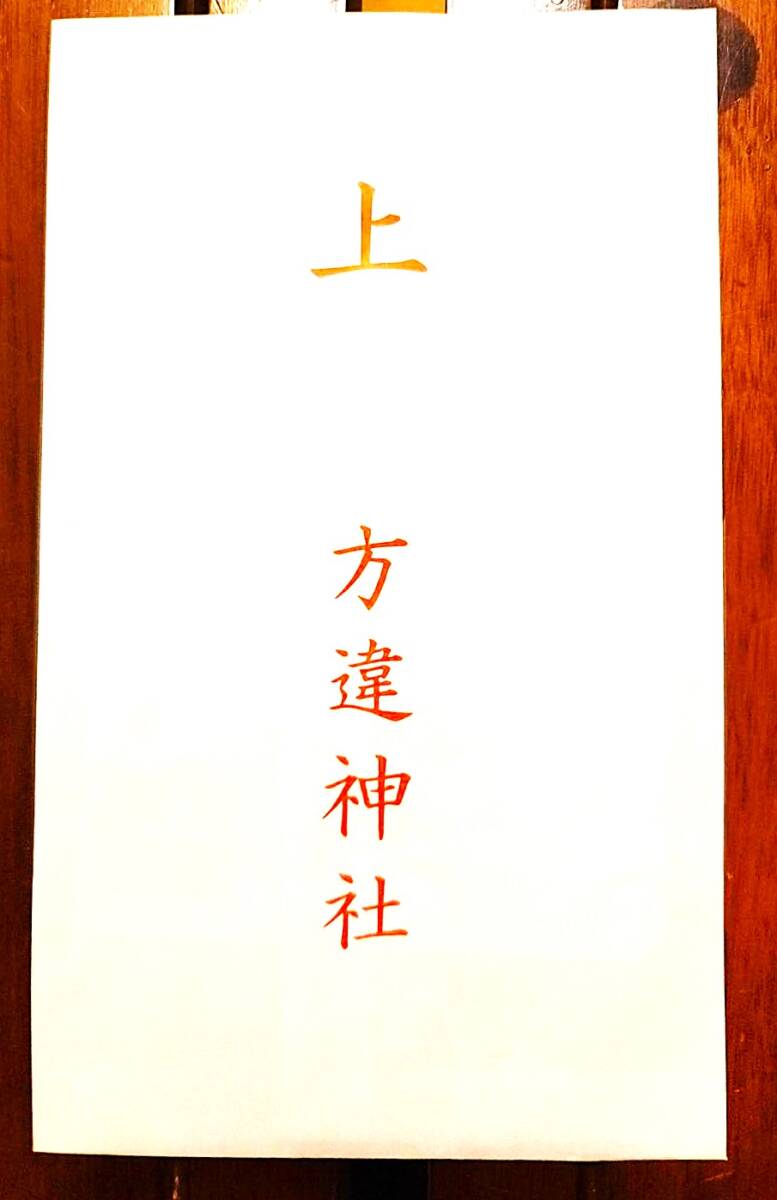 上
方違神社